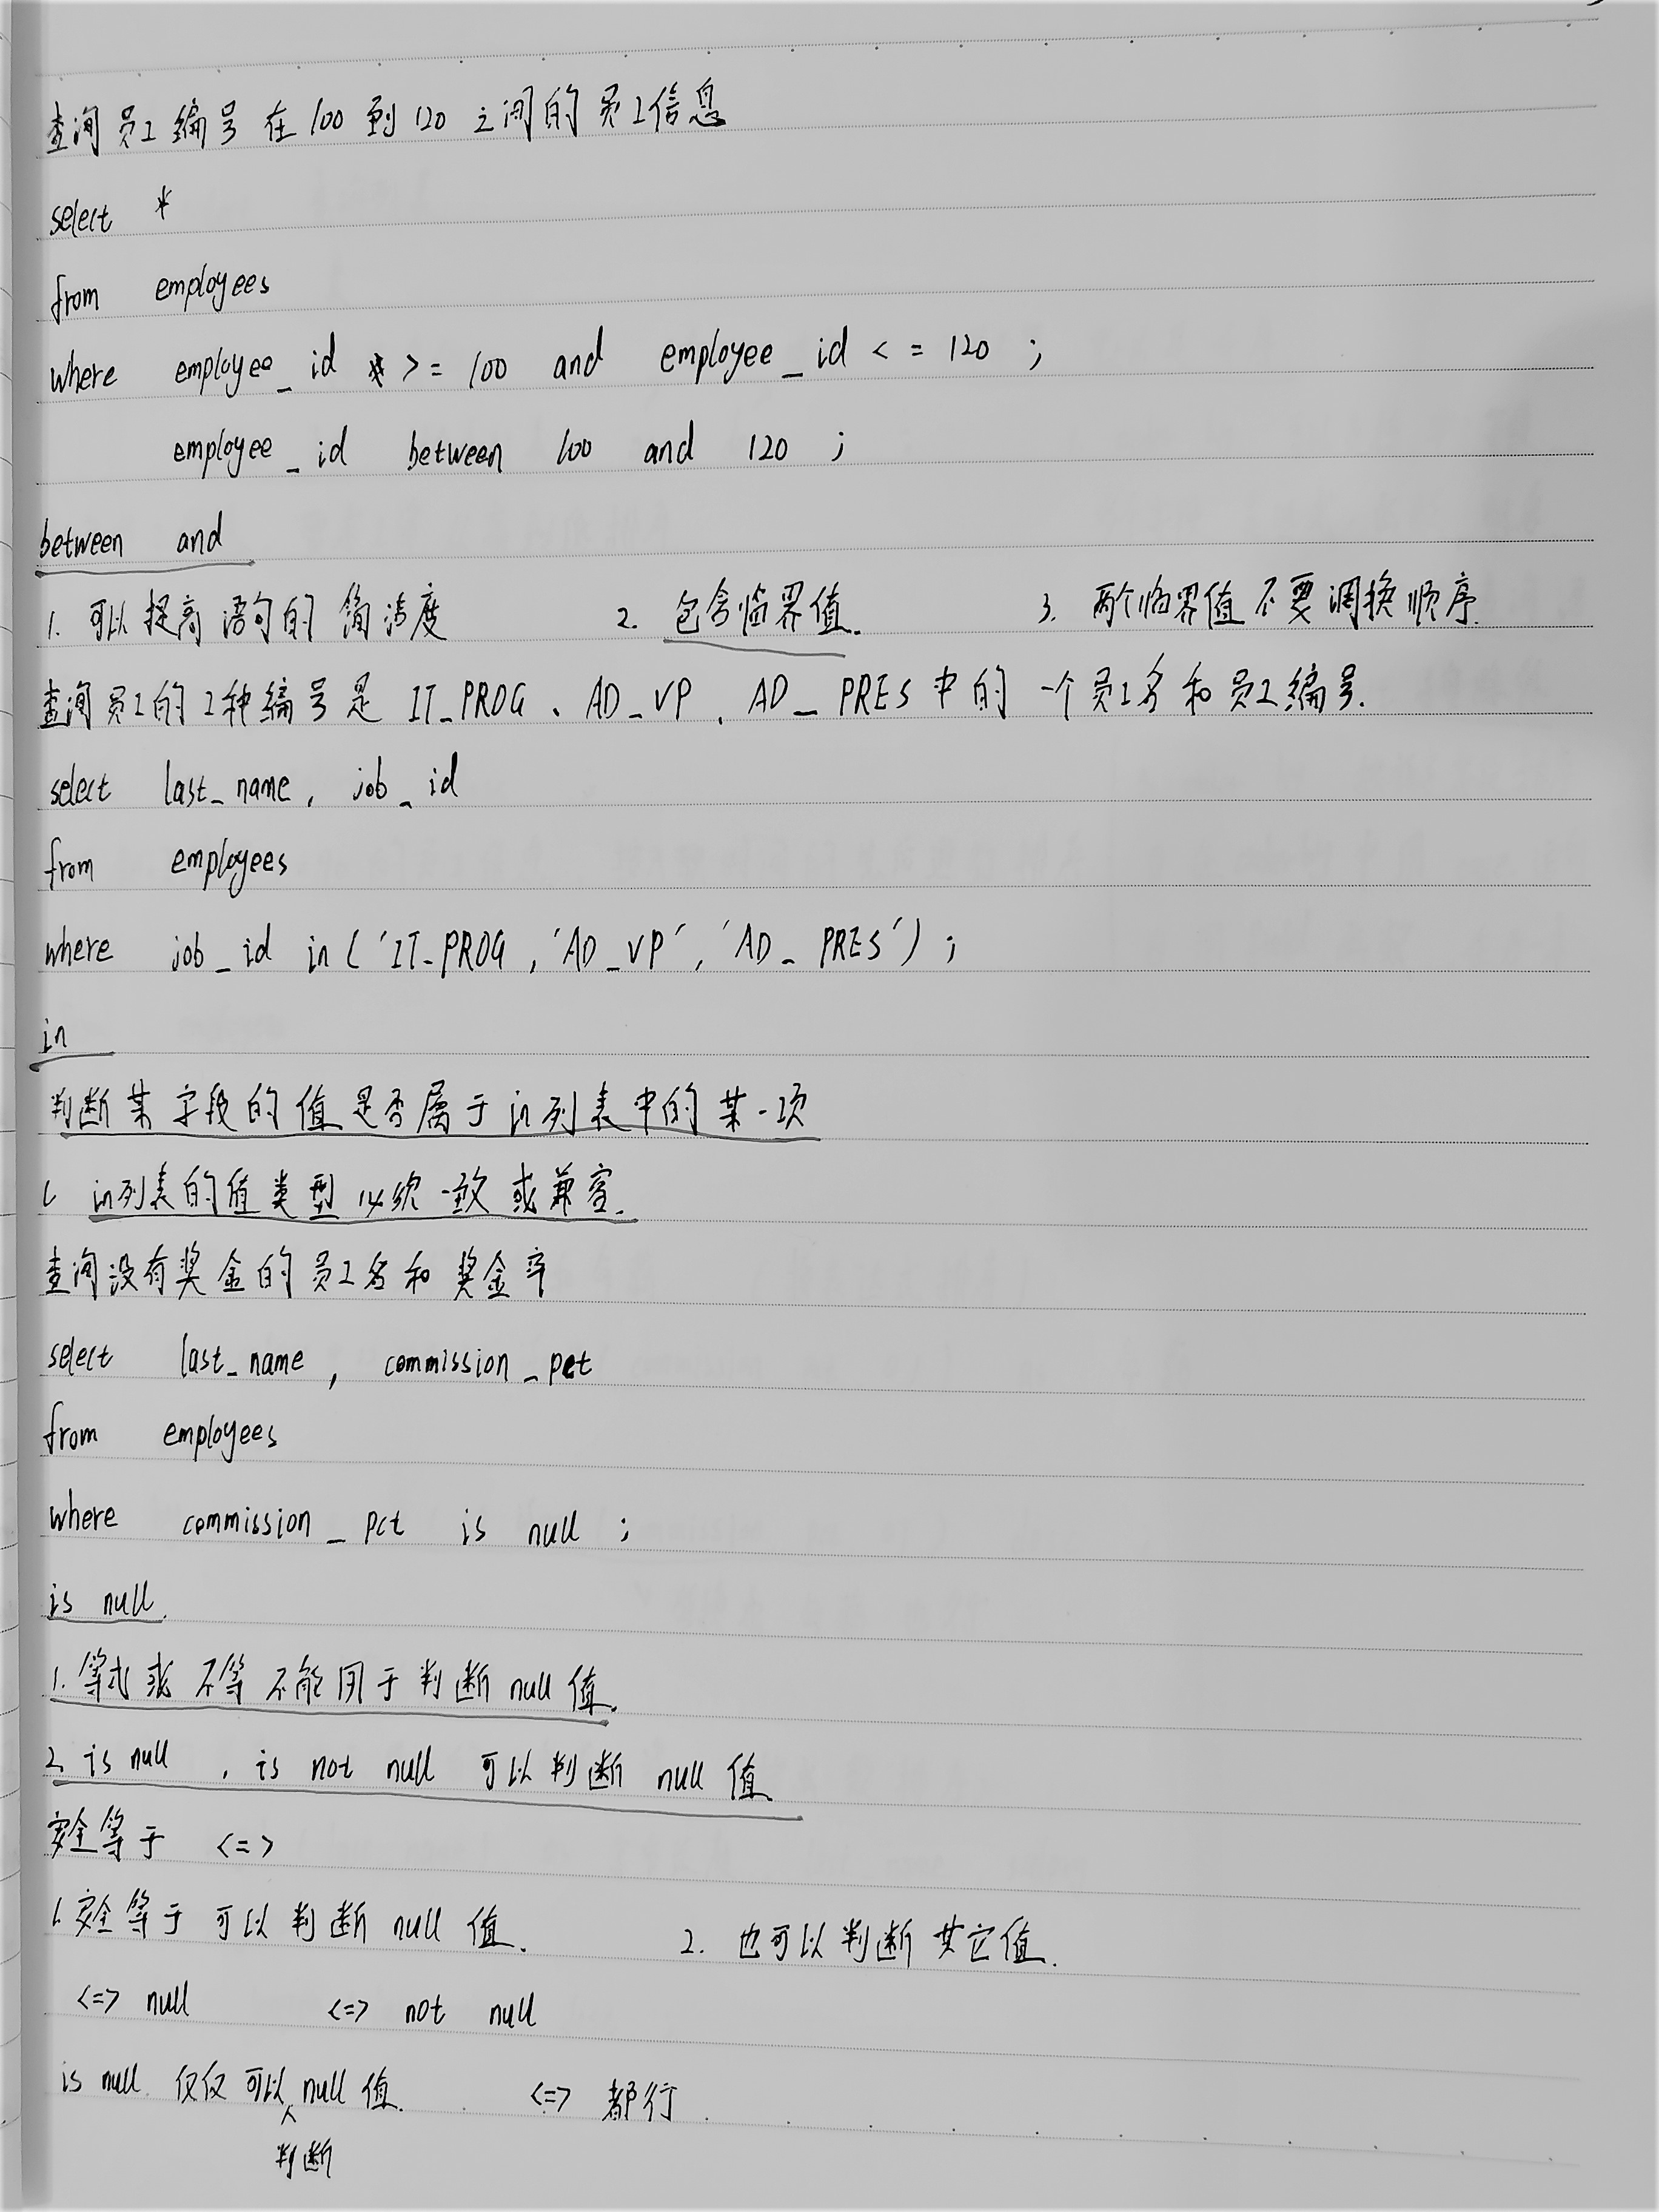 查询员工编号在100到120之间的员工信息
select *
from employees
where employee_id >= 100 and employee_id <= 120 ;
employee_id between 100 and 120 ;
between and
1. 可以提高语句的简洁度 2. 包含临界值. 3. 两个临界值不要调换顺序.
查询员工的工种编号是 IT_PROG 、 AD_VP 、 AD_PRES 中的 一个员工名和员工编号.
select last_name, job_id
from employees
where job_id in ( 'IT_PROG , 'AD_VP' , 'AD_PRES' ) ;
in
判断某字段的值是否属于in列表中的某一项
in列表的值类型必须一致或兼容.
查询没有奖金的员工名和奖金率
select last_name , commission_pct
from employees
where commission_pct is null ;
is null.
1. 等式或不等不能用于判断null值.
2. is null , is not null 可以判断 null 值
安全等于 <=>
1. 安全等于可以判断null值. 2. 也可以判断其它值.
<=> null <=> not null
is null 仅仅可以判断null值. <=> 都行.